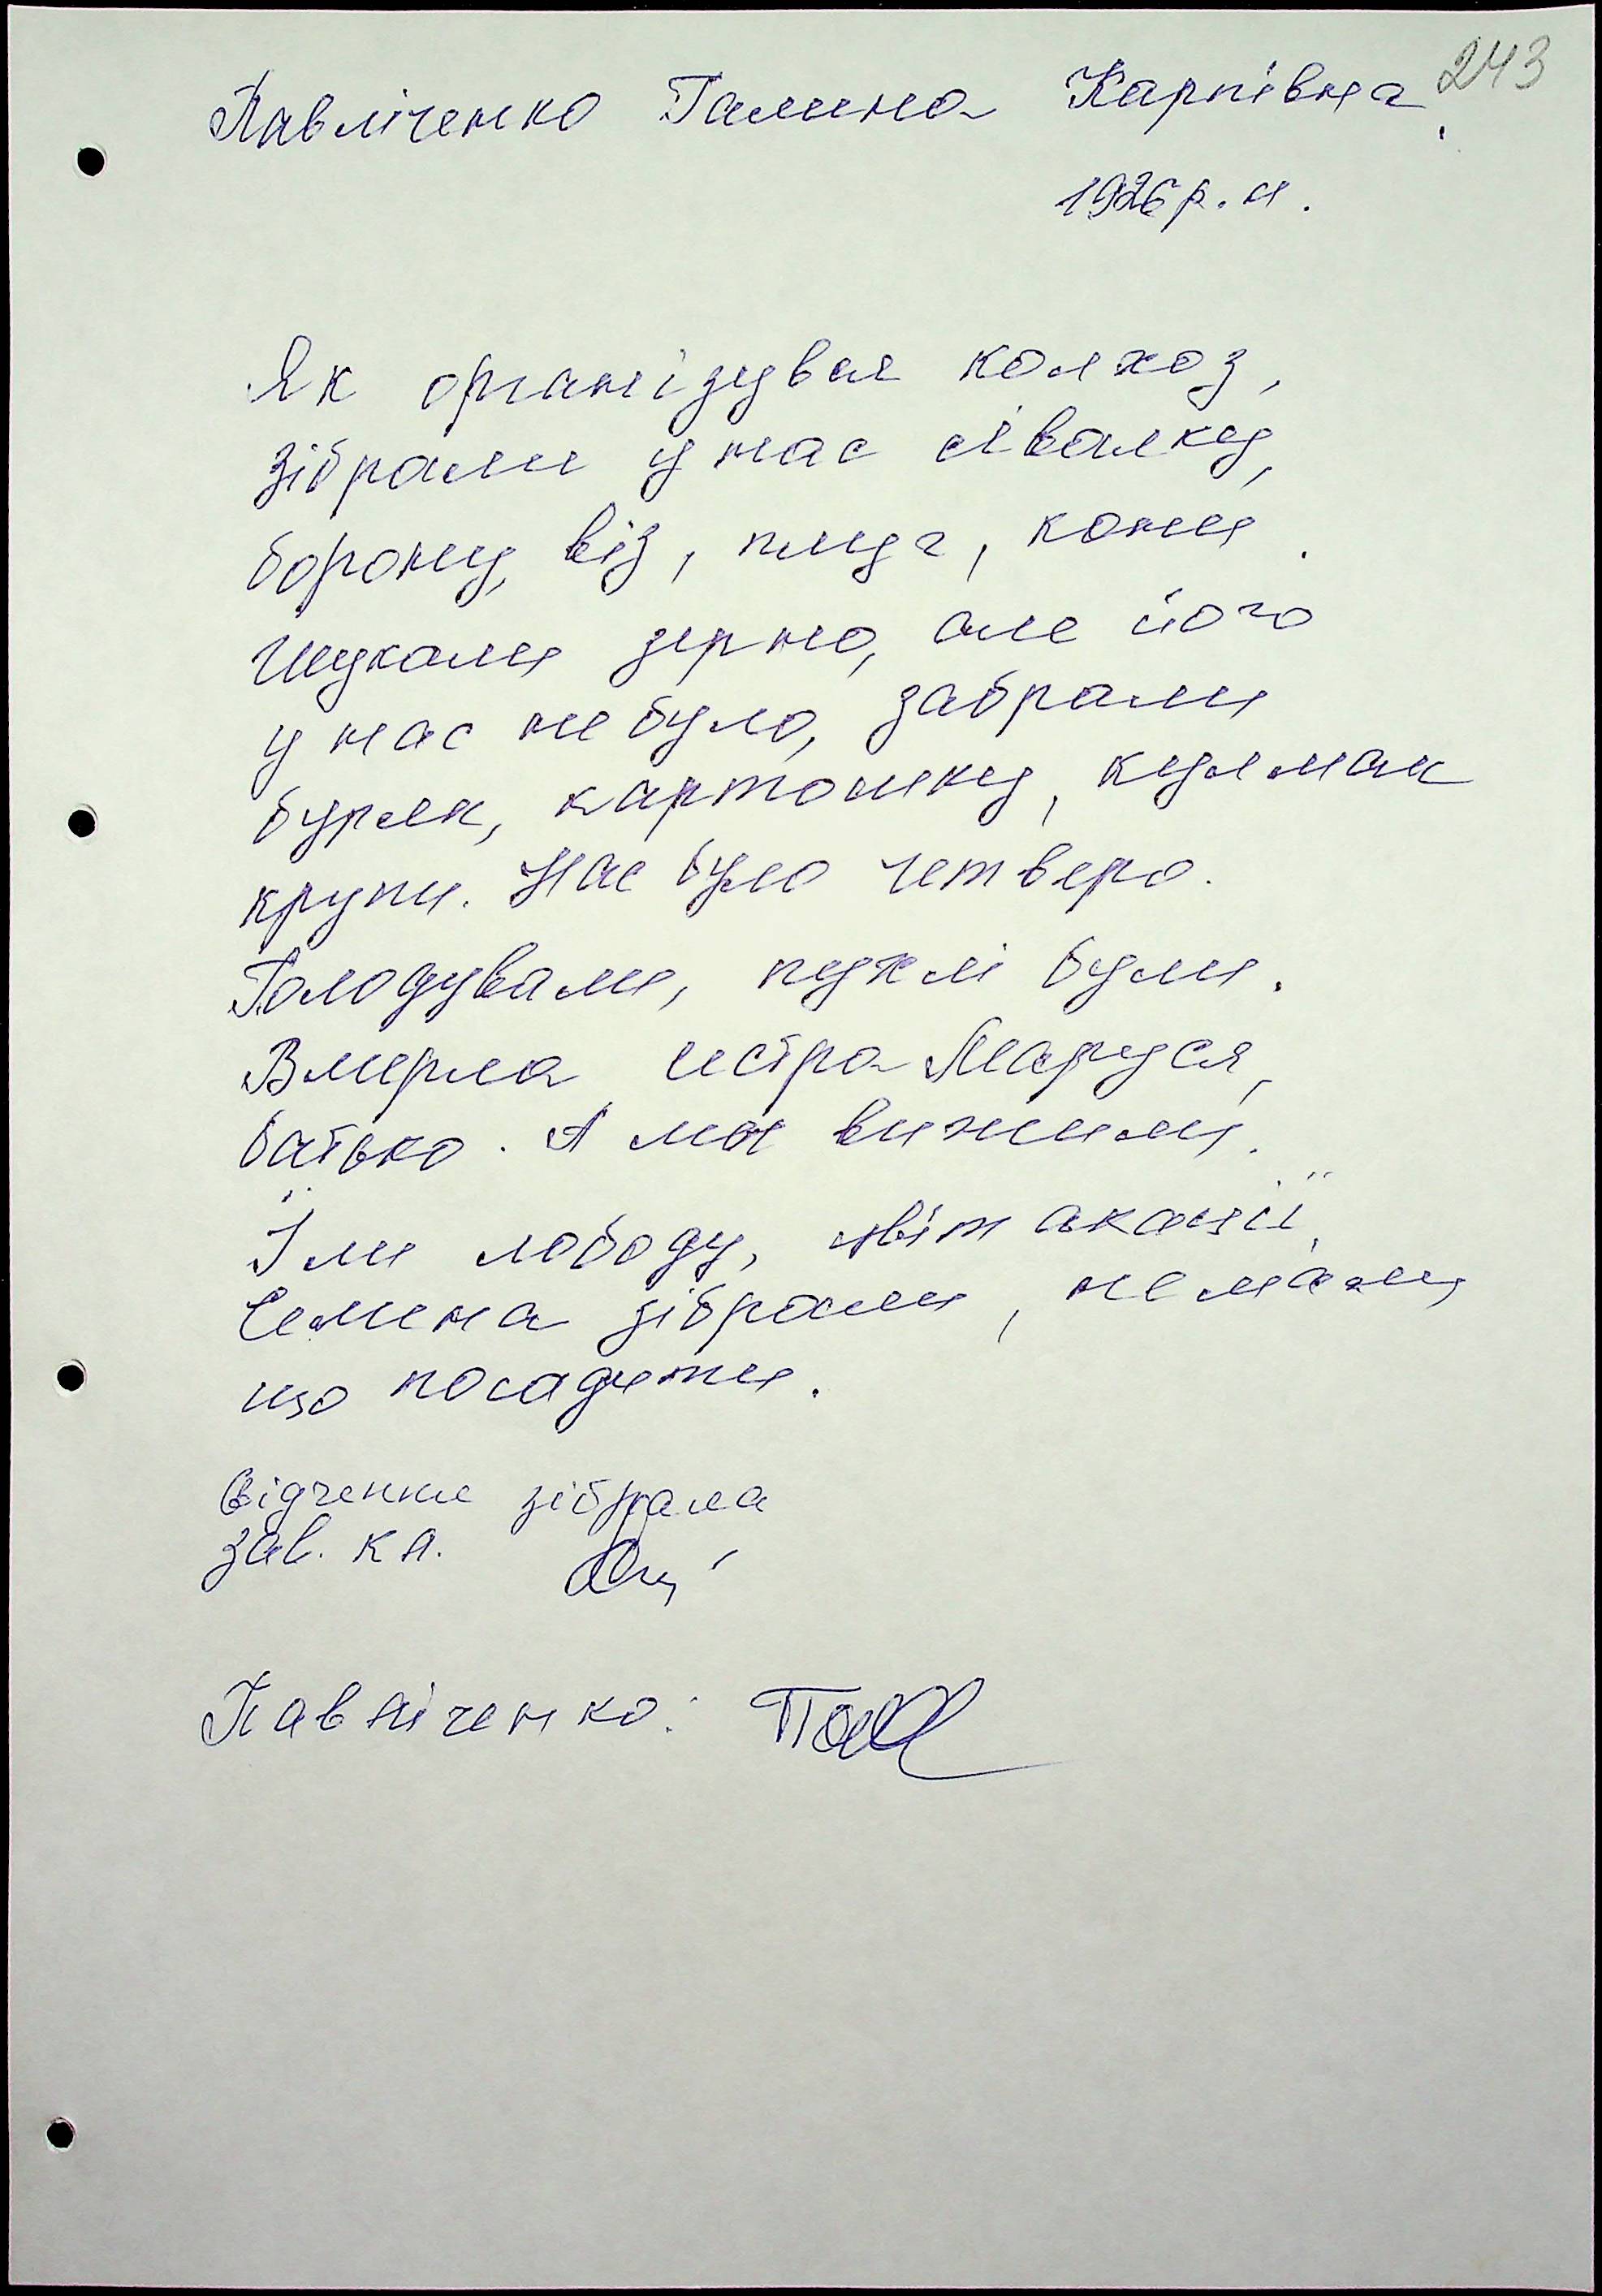 243
Павліченко Галина Карпівна.
1926 р. н.
Як організував колхоз,
зібрали у нас сівалку,
борону, віз, плуг, коня.
Шукали зерно, але його
у нас не було, забрали
буряк, картошку, кулмак
крупи. Нас було четверо.
Голодували, пухлі були.
Вмерла сестра Маруся,
батько. А ми вижили.
Їли лободу, цвіт акації,
Семена зібрали, не мали
що посадити.
Відчення зібрала
зав. кл.
Павліченко: